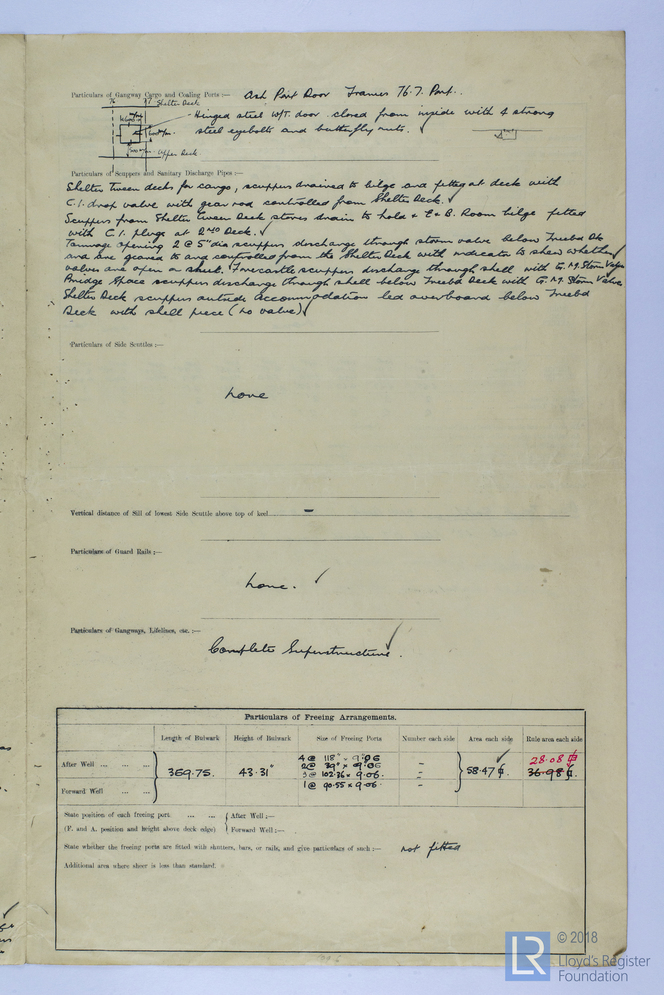 Particulars of Gangway Cargo and Coaling Ports :— Ash Port Door Frames 76.7. Port.
76 77 Shelter Deck
Hinged steel W/T. door closed from inside with 4 strong
steel eyebolts and butterfly nuts.
Upper Deck
Particulars of Scuppers and Sanitary Discharge Pipes :—
Shelter Tween decks for cargo, scuppers drained to bilge and fitted at deck with
C.I. drop valve with gear rod controlled from Shelter Deck.
Scuppers from Shelter Tween Deck stores drain to hold & E & B. Room bilge fitted
with C.I. plugs at 2nd Deck.
Tonnage opening 2 @ 5" dia scuppers discharge through storm valve below Freebd Dk
and are geared to and controlled from the Shelter Deck with indicator to shew whether
valves are open or shut. Forecastle scuppers discharge through shell with G.M. Storm Valve
Bridge Space scuppers discharge through shell below Freebd Deck with G.M. Storm Valve
Shelter Deck scuppers outside accommodation led overboard below Freebd
Deck with shell piece (no valve)
Particulars of Side Scuttles :—
none
Vertical distance of Sill of lowest Side Scuttle above top of keel -
Particulars of Guard Rails :—
none.
Particulars of Gangways, Lifelines, etc. :—
Complete Superstructure.
Particulars of Freeing Arrangements.
Length of Bulwark Height of Bulwark Size of Freeing Ports Number each side Area each side Rule area each side
After Well ... ... ...
Forward Well ... ...
369.75. 43.31"
4 @ 118" × 9.06 -
2 @ 39" × 9.06 -
3 @ 102.36 × 9.06. -
1 @ 90.55 × 9.06. -
58.47
28.08
36.98
State position of each freeing port ... ... After Well :—
(F. and A. position and height above deck edge) Forward Well :—
State whether the freeing ports are fitted with shutters, bars, or rails, and give particulars of such :— not fitted
Additional area where sheer is less than standard.
LR © 2018
Lloyd's Register
Foundation